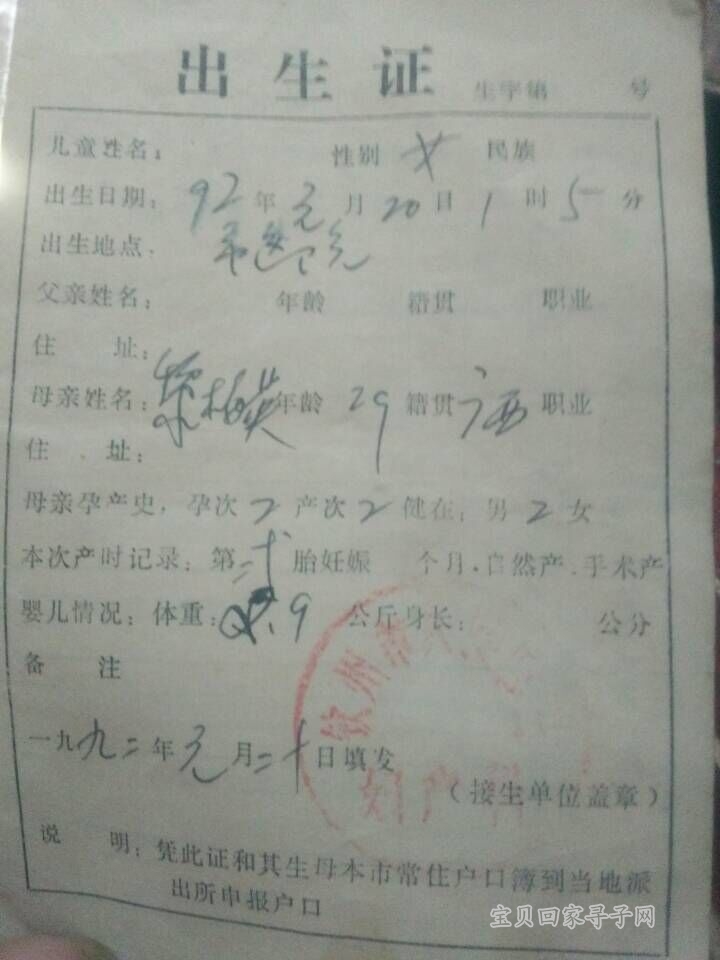 出生证 生字第 号
儿童姓名： 性别 女 民族
出生日期： 92年元月20日1时5分
出生地点．
父亲姓名： 年龄 籍贯 职业
住 址：
母亲姓名： 梅英 年龄 29 籍贯 广西 职业
住 ．址：
母亲孕产史，孕次2产次2健在：男2女
本次产时记录：第二胎妊娠 个月．自然产．手术产
婴儿情况：体重： .9 公斤身长： 公分
备 注
钦州市
妇产科
一九九二年元月二十日填发
（接生单位盖章）
说 明：凭此证和其生母本市常住户口簿到当地派
出所申报户口
宝贝回家寻子网